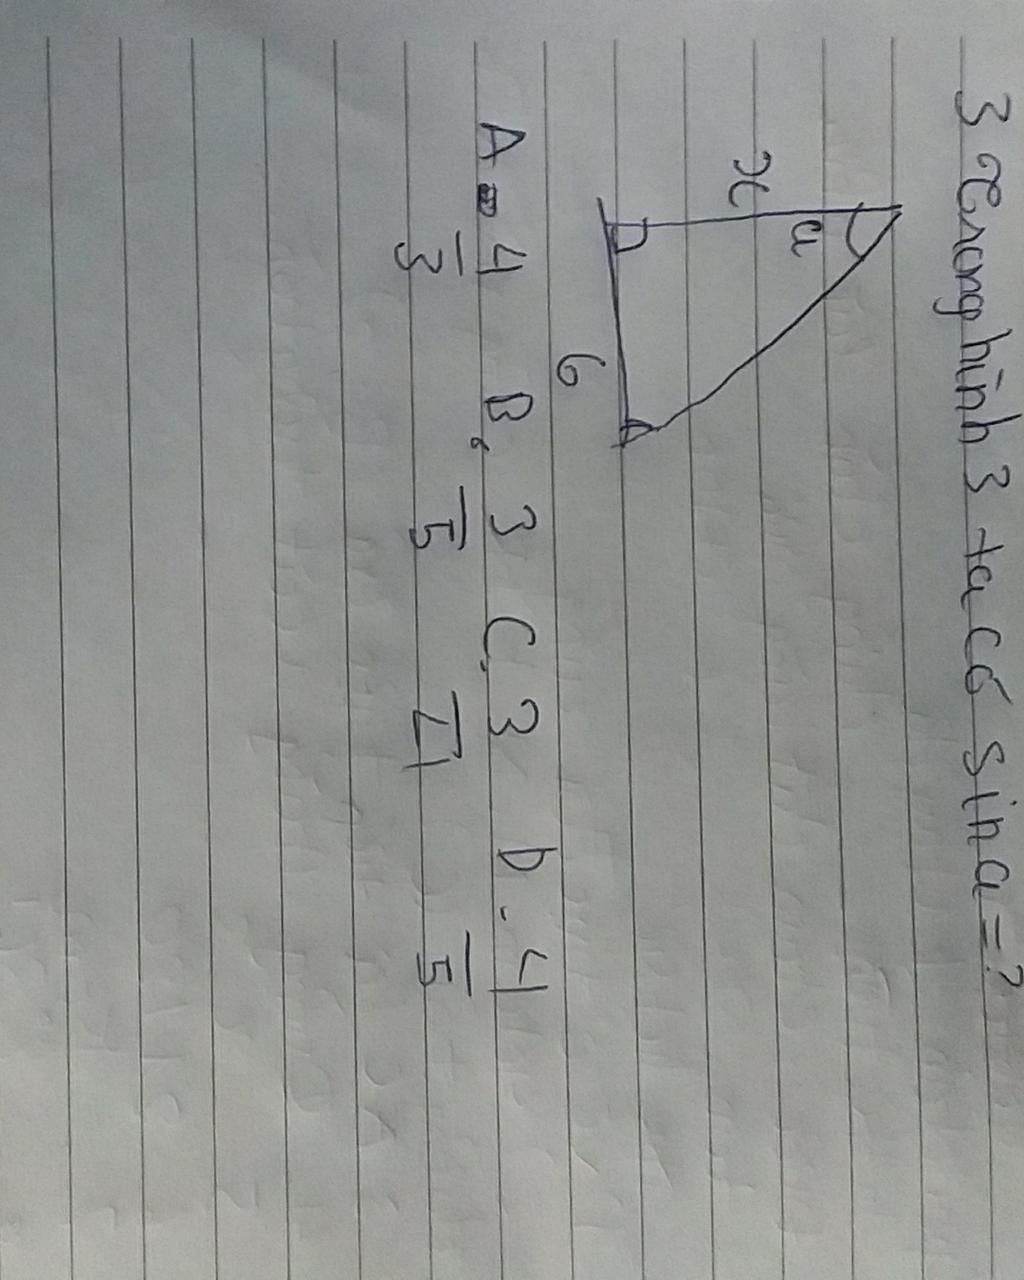 3 Trong hình 3 ta có sin a = ?
a
x
6
A. 4/3 B. 3/5 C. 3/4 D. 4/5